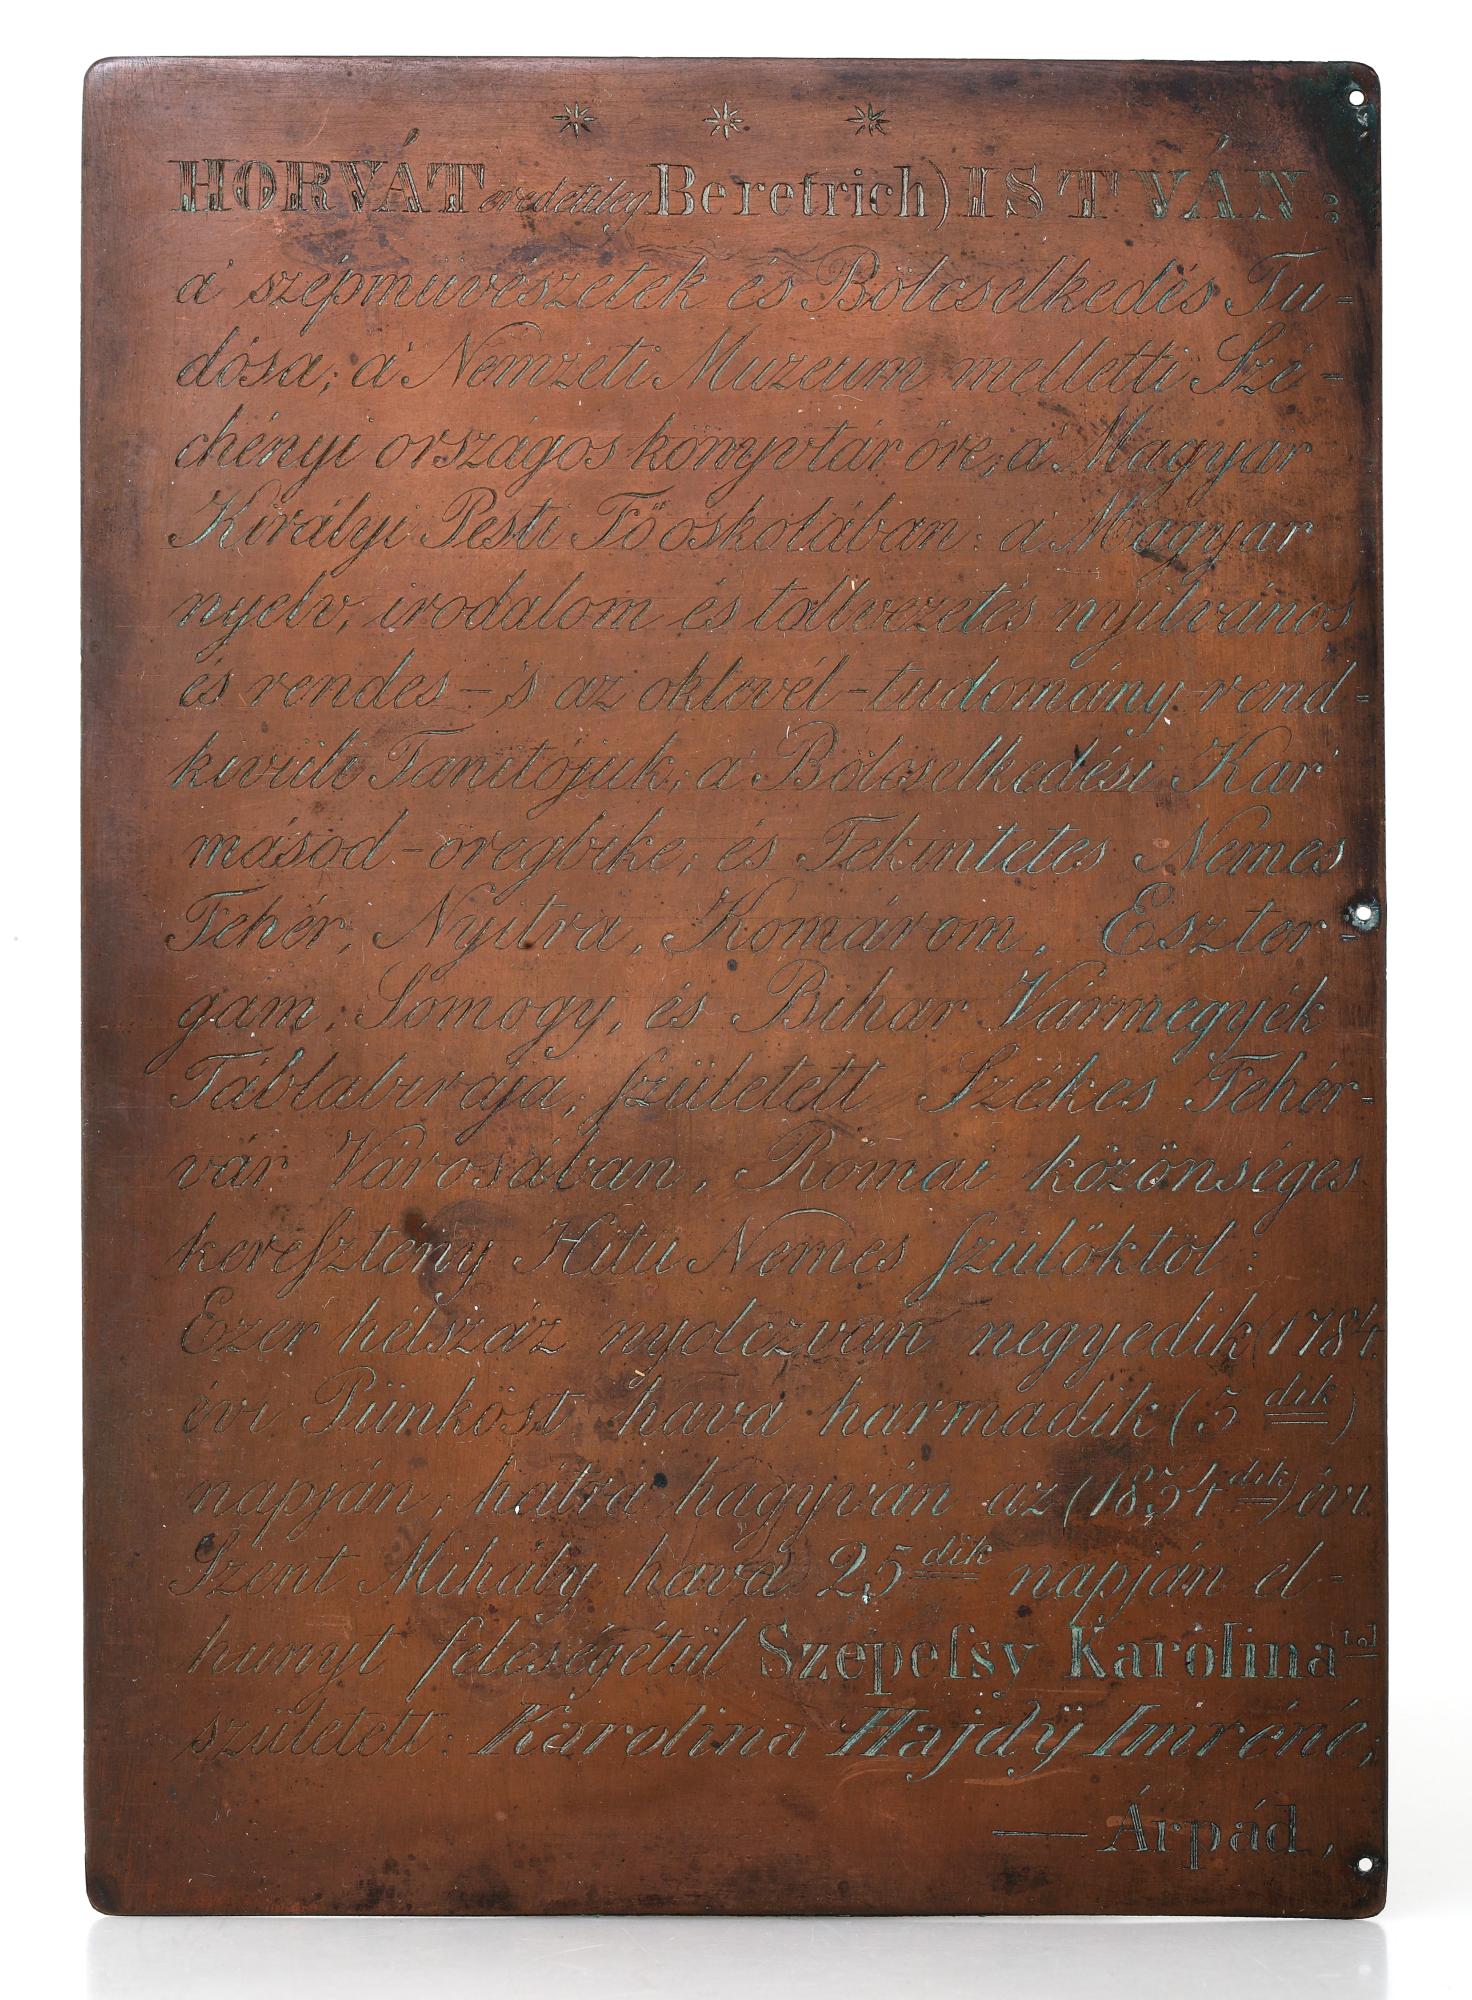 HORVÁT eredetileg Beretrich) ISTVÁN:
a' szépművészetek és Bölcselkedés Tu-
dósa; a' Nemzeti Muzeum melletti Szé-
chényi országos könyvtár őre; a' Magyar
Királyi Pesti Főoskolában: a' Magyar
nyelv, irodalom és tollvezetés nyilvános
és rendes - 's az oklevél-tudomány rend-
kivüli Tanítójuk; a' Bölcselkedési Kar
másod-öregbike; és Tekintetes Nemes
Fehér, Nyitra, Komárom, Eszter-
gam, Somogy, és Bihar Vármegyék
Táblabirája, született Székes Fehér-
vár Városában, Római közönséges
keresztény Hitü Nemes szülőktől:
Ezer hétszáz nyolczvan negyedik (1784.
évi Pünköst hava harmadik (3 dik)
napján, hátra hagyván az (1834 dik) évi
Szent Mihály hava 25 dik napján el-
hunyt feleségétül Szepessy Karolinatól
született: Karolina Hajdÿ Imréné,
— Árpád,